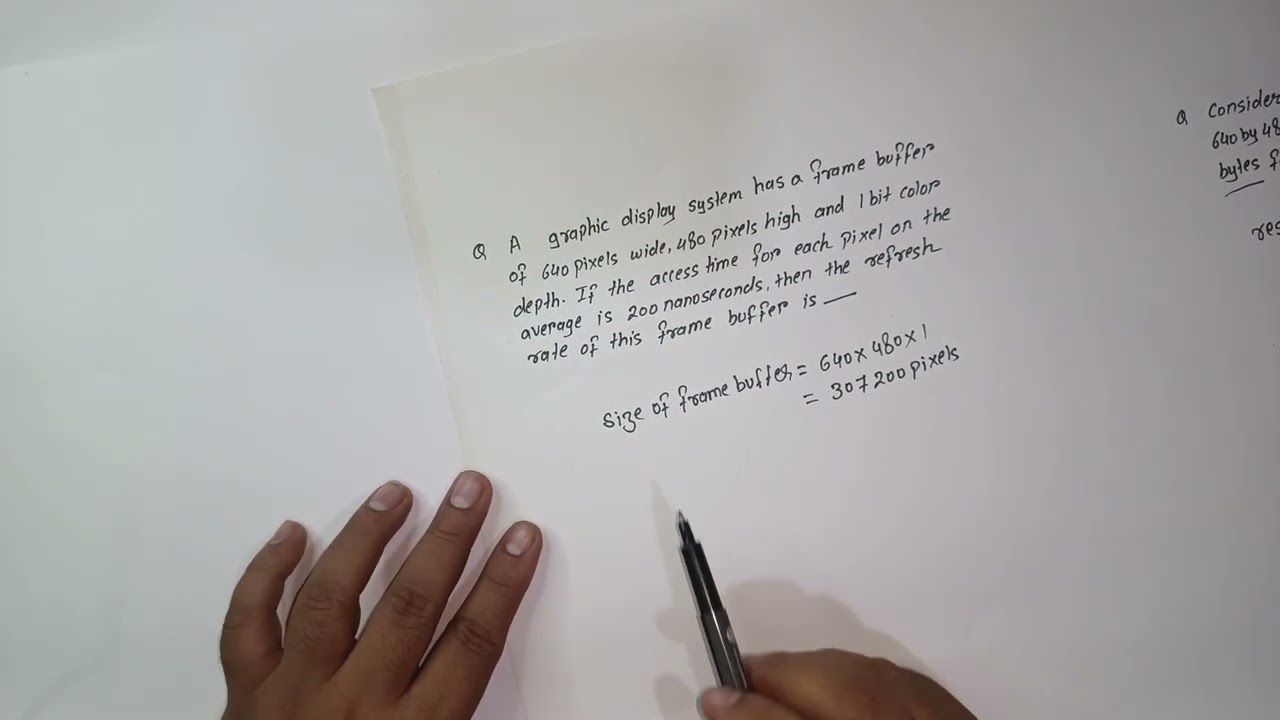 Q A graphic display system has a frame buffer
of 640 pixels wide, 480 pixels high and 1 bit color
depth. If the access time for each pixel on the
average is 200 nanoseconds, then the refresh
rate of this frame buffer is —
size of frame buffer = 640 x 480 x 1
= 307200 pixels
Q Consider
640 by 48
bytes f
res